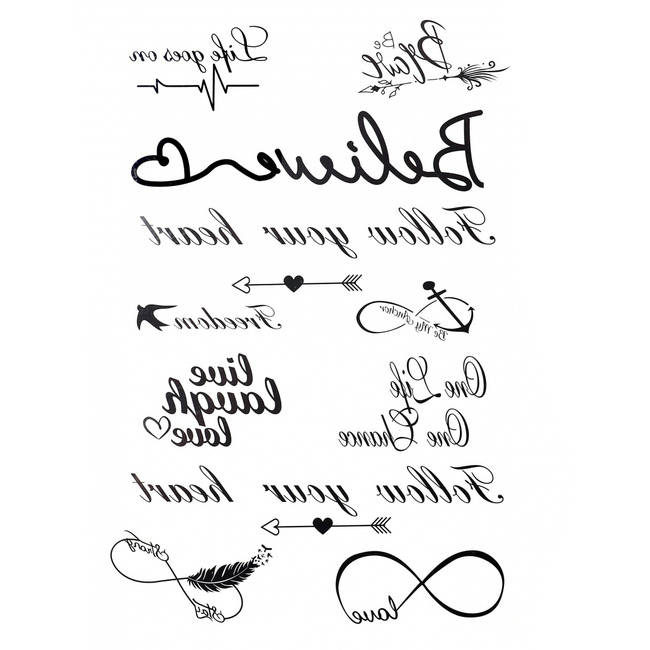 Life goes on
Be
Brave
Believe
Follow your heart
Freedom
Be My Anchor
live
laugh
love
One Life
One Chance
Follow your heart
Strong
Stay
love